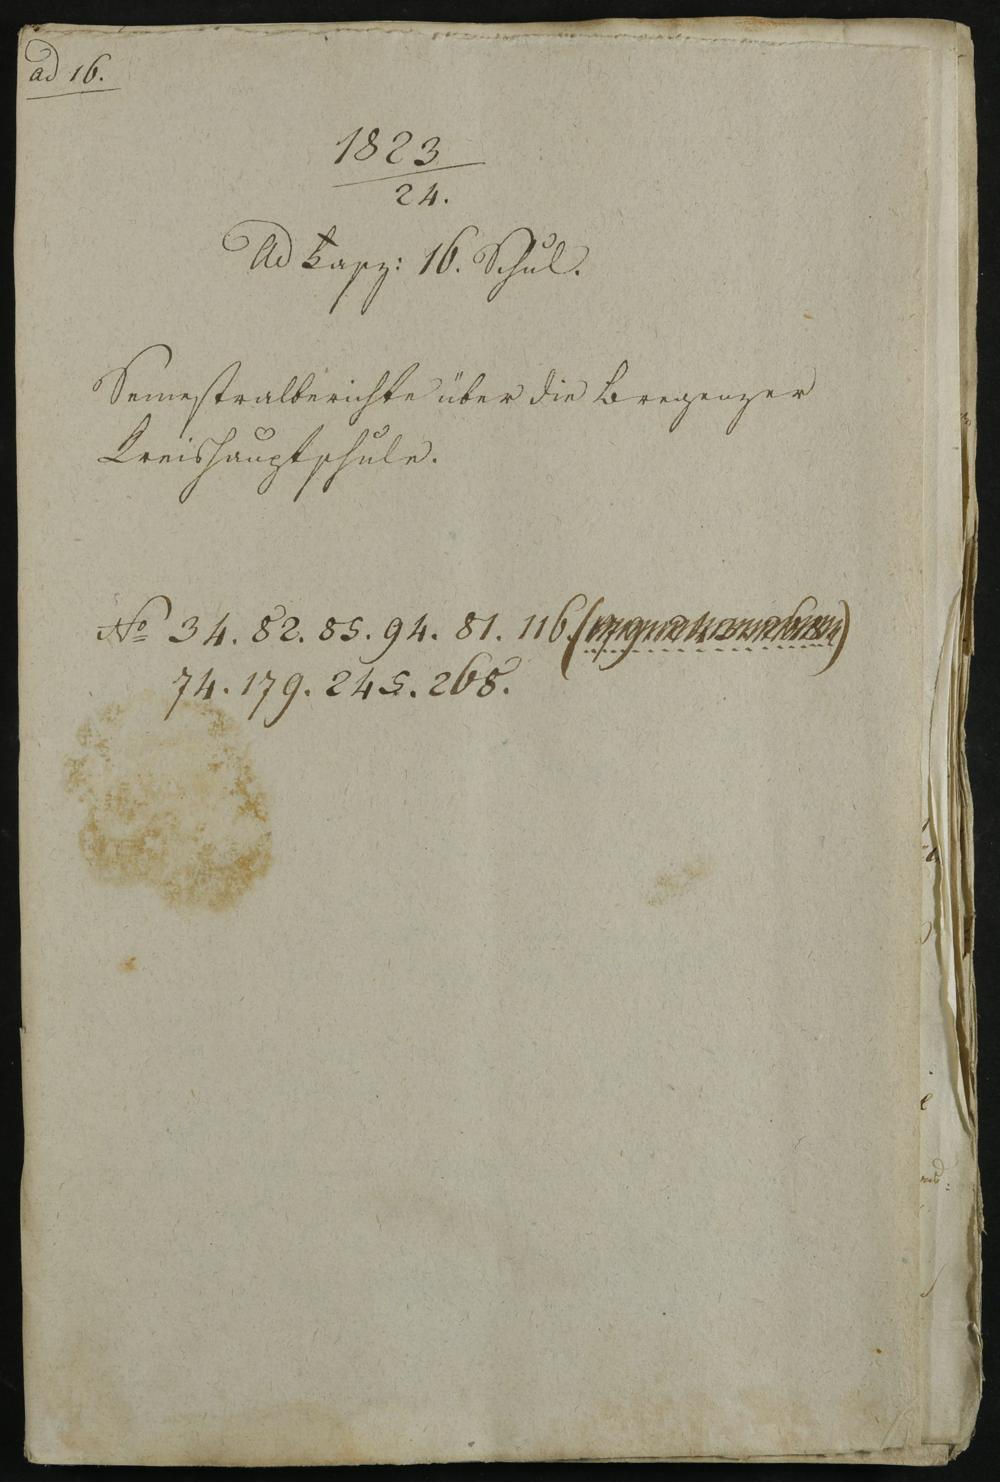 ad 16.
1823
24.
Ad Fasz: 16. Schul.
Semestralberichte über die Bregenzer
Kreishauptschule.
No 34. 82. 85. 94. 81. 116. (
74. 179. 245. 268.